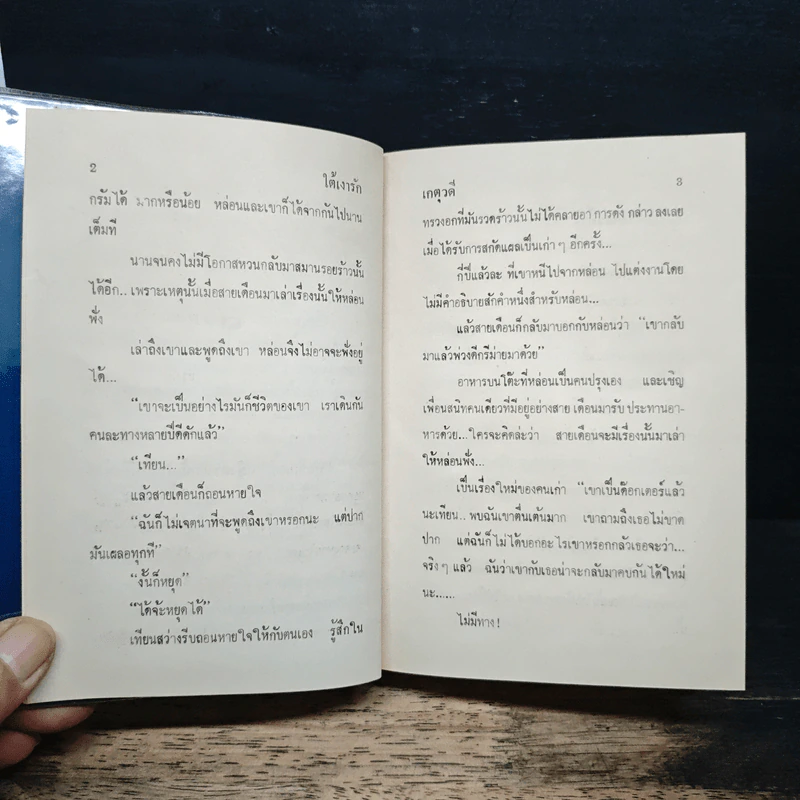 2
ใต้เงารัก
กรัมได้ มากหรือน้อย หล่อนและเขาก็ได้จากกันไปนาน
เต็มที
นานจนคงไม่มีโอกาสหวนกลับมาสมานรอยร้าวนั้น
ได้อีก.. เพราะเหตุนั้นเมื่อสายเดือนมาเล่าเรื่องนั้นให้หล่อน
ฟัง
เล่าถึงเขาและพูดถึงเขา หล่อนจึงไม่อาจจะฟังอยู่
ได้...
“เขาจะเป็นอย่างไรมันก็ชีวิตของเขา เราเดินกัน
คนละทางหลายปีดีดักแล้ว”
“เทียน...”
แล้วสายเดือนก็ถอนหายใจ
“ฉันก็ไม่เจตนาที่จะพูดถึงเขาหรอกนะ แต่ปาก
มันเผลอทุกที”
“งั้นก็หยุด”
“ได้จ้ะหยุดได้”
เทียนสว่างรีบถอนหายใจให้กับตนเอง รู้สึกใน
เกตุวดี
3
ทรวงอกที่มันรวดร้าวนั้นไม่ได้คลายอาการดังกล่าวลงเลย
เมื่อได้รับการสกัดแผลเป็นเก่าๆ อีกครั้ง...
กี่ปีแล้วละ ที่เขาหนีไปจากหล่อน ไปแต่งงานโดย
ไม่มีคำอธิบายสักคำหนึ่งสำหรับหล่อน...
แล้วสายเดือนก็กลับมาบอกกับหล่อนว่า “เขากลับ
มาแล้วพ่วงดีกรีม่ายมาด้วย”
อาหารบนโต๊ะที่หล่อนเป็นคนปรุงเอง และเชิญ
เพื่อนสนิทคนเดียวที่มีอยู่อย่างสายเดือนมารับประทานอา-
หารด้วย...ใครจะคิดล่ะว่า สายเดือนจะมีเรื่องนั้นมาเล่า
ให้หล่อนฟัง...
เป็นเรื่องใหม่ของคนเก่า “เขาเป็นด๊อกเตอร์แล้ว
นะเทียน.. พบฉันเขาตื่นเต้นมาก เขาถามถึงเธอไม่ขาด
ปาก แต่ฉันก็ไม่ได้บอกอะไรเขาหรอกกลัวเธอจะว่า...
จริงๆ แล้ว ฉันว่าเขากับเธอน่าจะกลับมาคบกันได้ใหม่
นะ......
ไม่มีทาง!